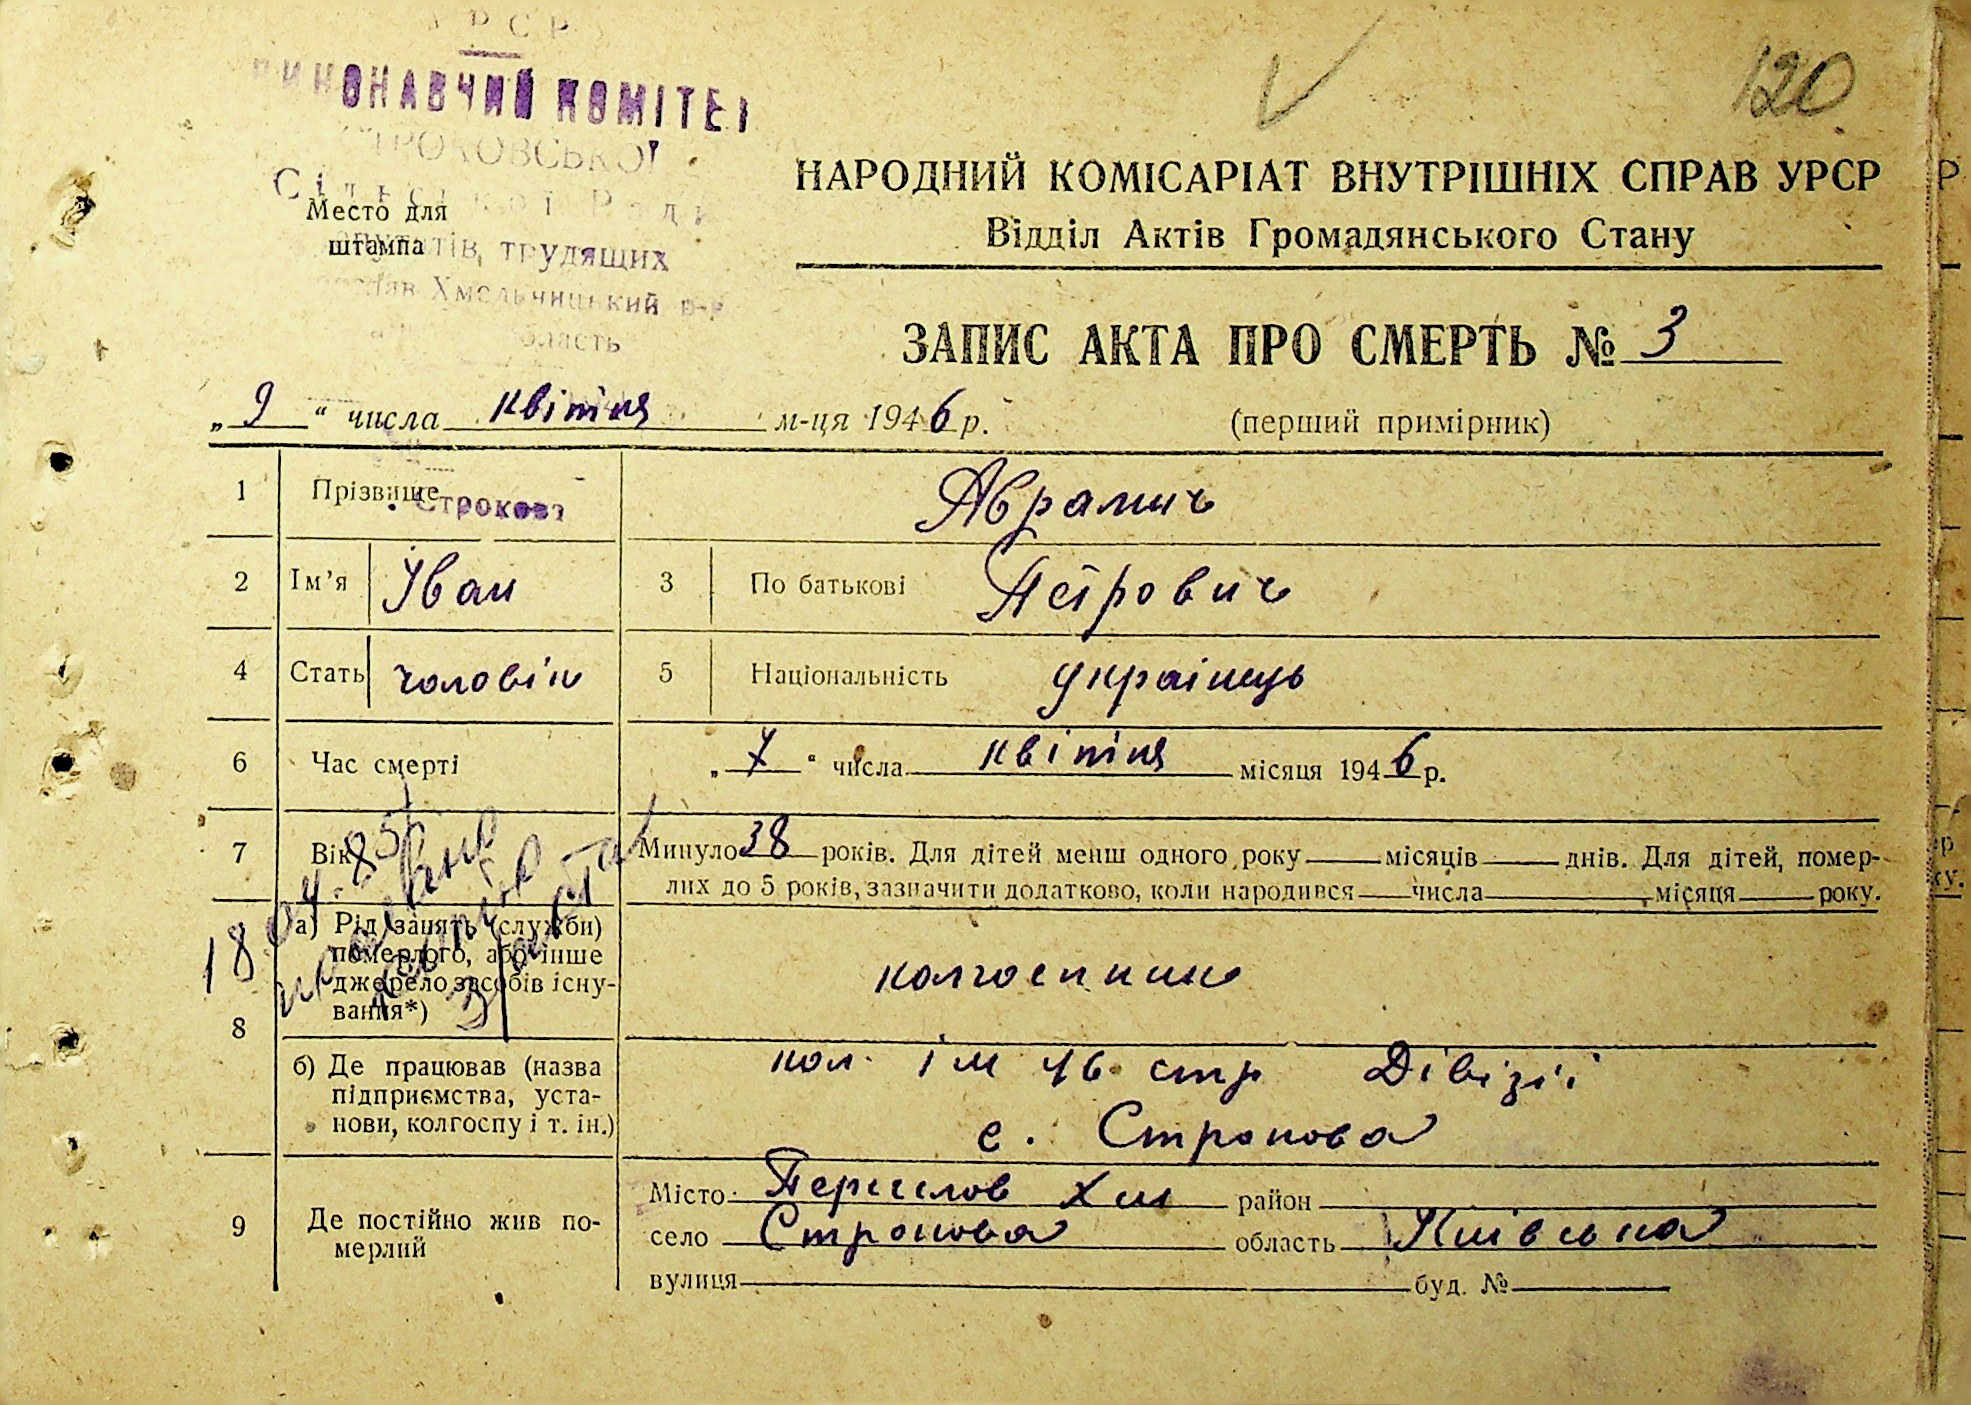 РСР
ВИКОНАВЧИЙ КОМІТЕТ
СТРОКОВСЬКОЇ
Сільської Ради
депутатів, трудящих
Хмельницький р-н
область
Место для
штампа
120
НАРОДНИЙ КОМІСАРІАТ ВНУТРІШНІХ СПРАВ УРСР
Відділ Актів Громадянського Стану
ЗАПИС АКТА ПРО СМЕРТЬ № 3
„ 9 “ числа квітня м-ця 1946 р.
(перший примірник)
1 Прізвище Аврамич
Строкова
2 Ім’я Іван 3 По батькові Петрович
4 Стать чоловік 5 Національність українець
6 Час смерті „ 7 “ числа квітня місяця 1946 р.
7 Вік Минуло 38 років. Для дітей менш одного року місяців днів. Для дітей, помер-
лих до 5 років, зазначити додатково, коли народився числа місяця року.
18.04.85
8 а) Рід занять (служби)
померлого, або інше
джерело засобів існу-
вання*)
колгоспник
б) Де працював (назва
підприємства, уста-
нови, колгоспу і т. ін.)
кол. ім 46 стр Дівізії
с. Строкова
9 Де постійно жив по-
мерлий
Місто Переяслов Хм район
село Строкова область Київська
вулиця буд. №